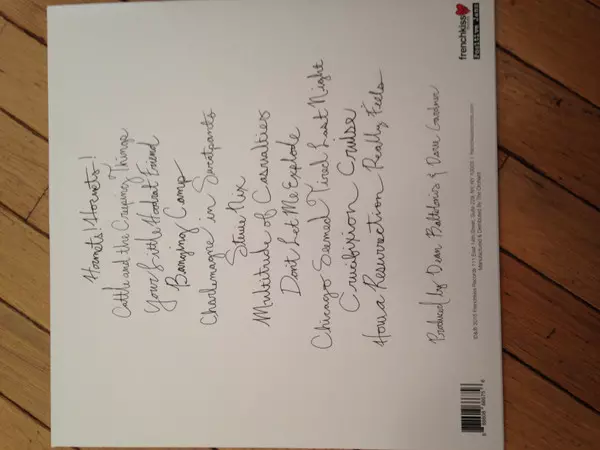 Hornets! Hornets!
Cattle and the Creeping Things
Your Little Hoodrat Friend
Banging Camp
Charlemagne in Sweatpants
Stevie Nix
Multitude of Casualties
Don't Let Me Explode
Chicago Seemed Tired Last Night
Crucifixion Cruise
How a Resurrection Really Feels
Produced by Dean Baltulonis & Dave Gardner
frenchkiss
2016 Frenchkiss Records 111 East 14th Street, Suite 229, NY, NY 10003
Manufactured & Distributed By The Orchard